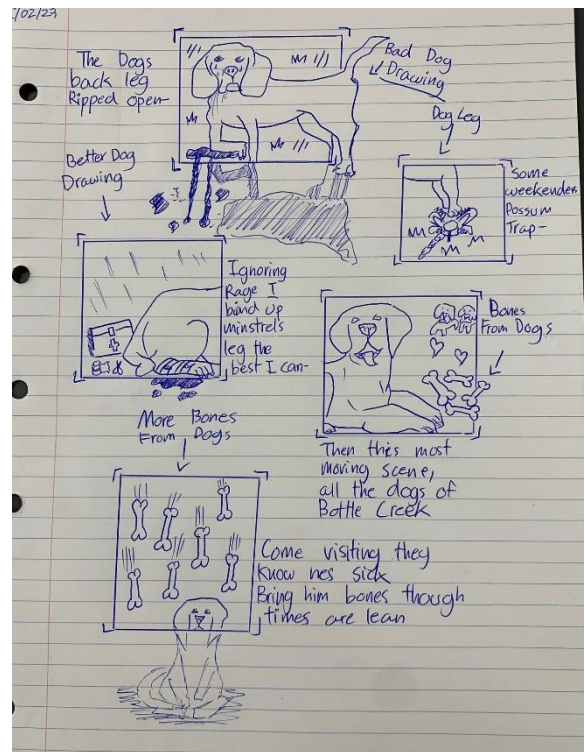 1/02/23
The Dogs
back leg
Ripped open-
Bad Dog
Drawing
Dog Leg
Better Dog
Drawing
Some
weekender
Possum
Trap-
Ignoring
Rage I
bind up
minstrel's
leg the
best I can-
Bones
From Dogs
More Bones
From Dogs
Then this most
moving scene,
all the dogs of
Bottle Creek
Come visiting they
know hes sick
Bring him bones though
times are lean